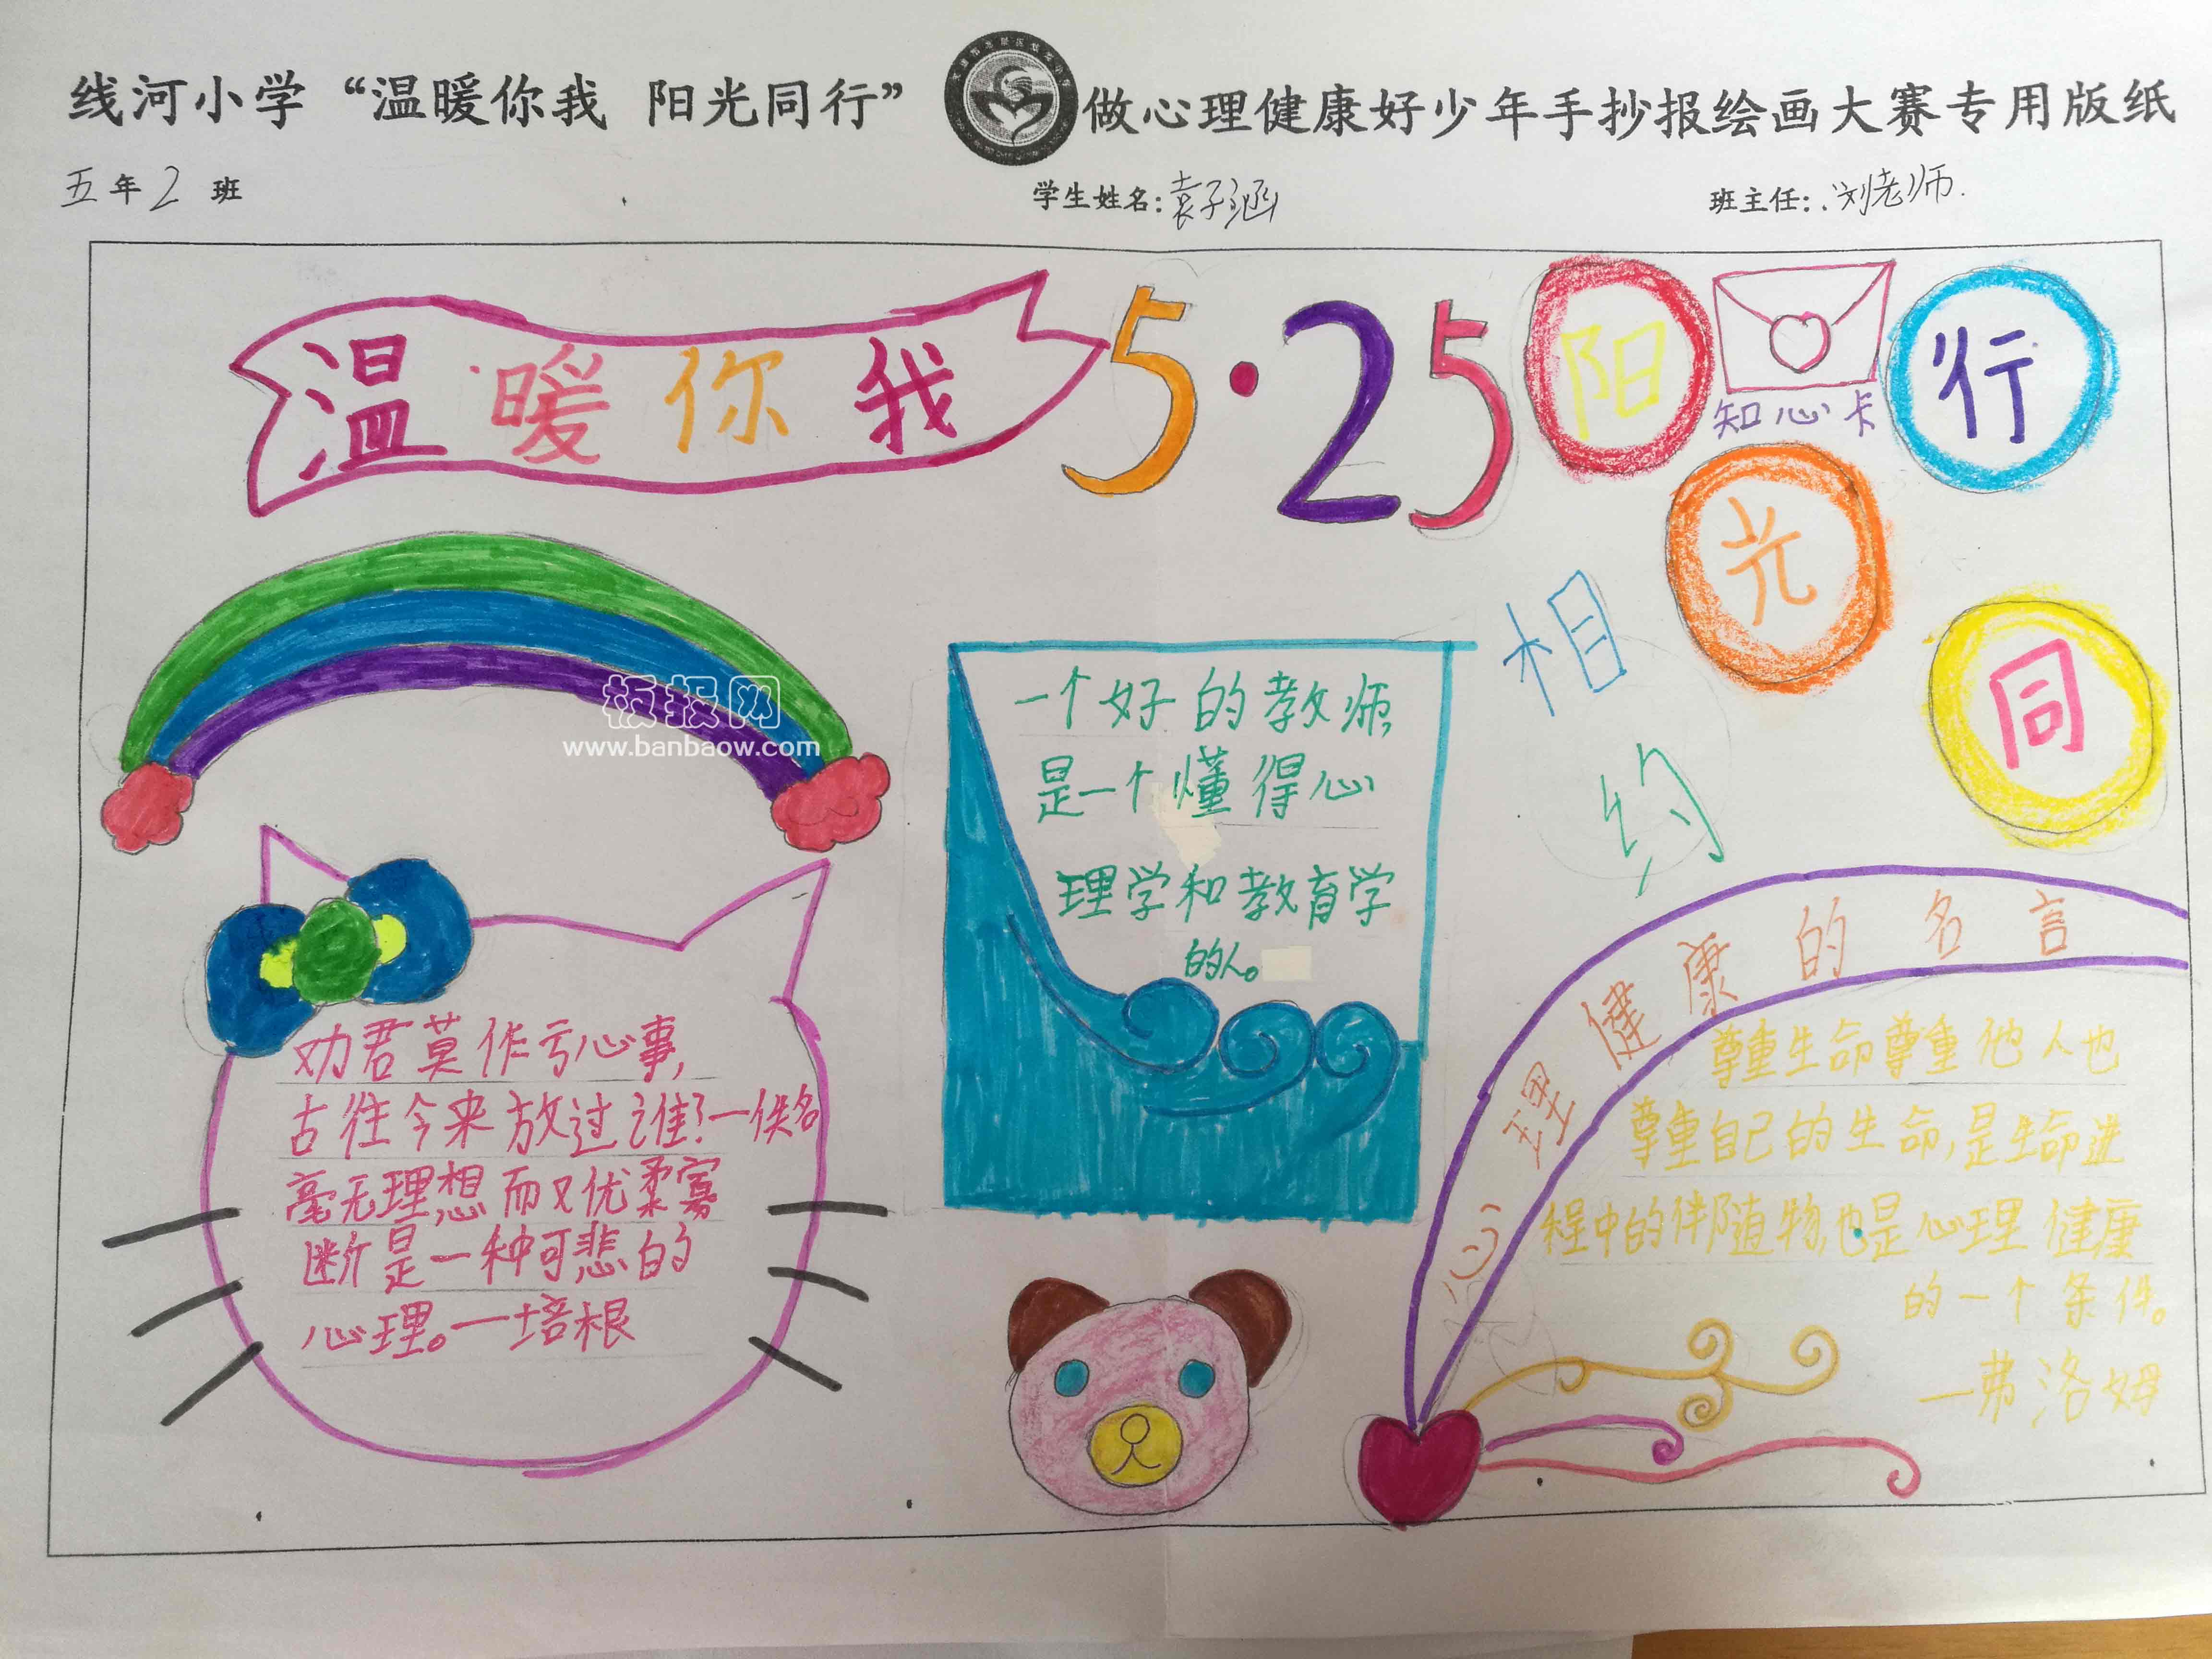 线河小学“温暖你我 阳光同行” 做心理健康好少年手抄报绘画大赛专用版纸
五年2班 学生姓名:袁子涵 班主任:刘老师.
温暖你我
5·25
阳光同行
知心卡
相约
板报网
www.banbaow.com
一个好的教师,
是一个懂得心
理学和教育学
的人。
劝君莫作亏心事,
古往今来放过谁?一佚名
毫无理想而又优柔寡
断是一种可悲的
心理。一培根
心理健康的名言
尊重生命尊重他人也
尊重自己的生命,是生命进
程中的伴随物,也是心理健康
的一个条件。
一弗洛姆